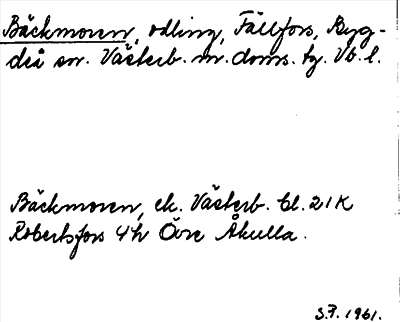 Bäckmoren, odling, Fällfors, Byg-
deå sn. Västerb. n. doms. tg. Vb. l.
Bäckmoren, ek. Västerb. bl. 21K
Robertsfors 4h Övre Åkulla.
S.F. 1961.